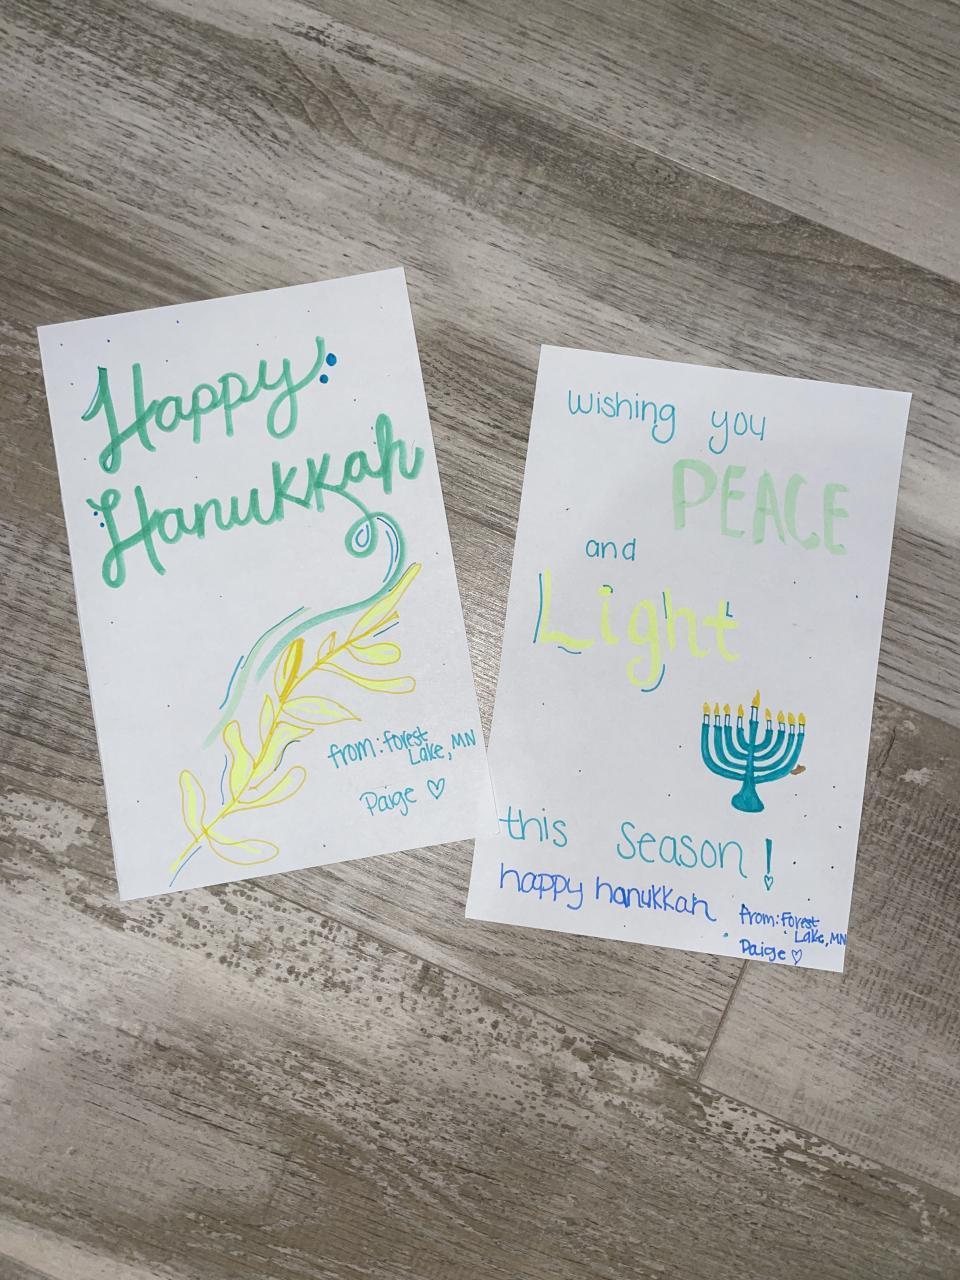 Happy
Hanukkah
from: Forest
Lake, MN
Paige
wishing you
PEACE
and
Light
this season!
happy hanukkah
from: Forest
Lake, MN
Paige